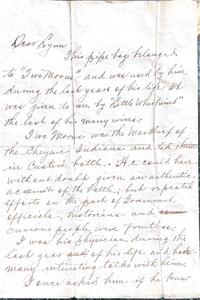 Dear Lynn
This pipe bag belonged
to "Two Moons" and was used by him
during the last years of his life. It
was given to me by "Little Whirlwind"
the last of his many wives:
Two Moons was the War Chief of
the Cheyenne Indians and led them
in Custer's battle. He could have
without doubt given an authentic
account of the battle; but repeated
efforts on the part of Government
officials, historians and
curious people were fruitless.
I was his physician during the
last year of his life and had
many interesting talks with him.
I once asked him if he knew